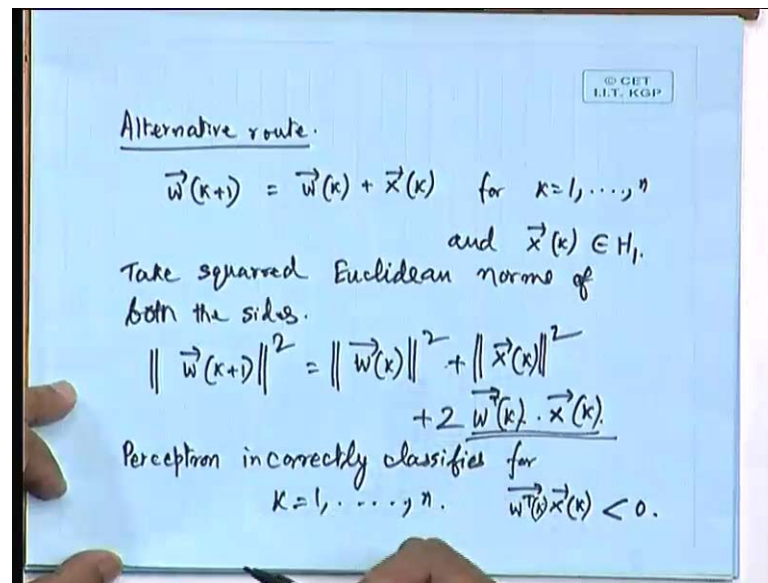 © CET
I.I.T. KGP
Alternative route.
w⃗(k+1) = w⃗(k) + x⃗(k) for k=1, ....., n
and x⃗(k) ∈ H₁.
Take squared Euclidean norms of
both the sides.
‖ w⃗(k+1)‖² = ‖ w⃗(k)‖² + ‖ x⃗(k)‖²
+ 2 w⃗ᵀ(k). x⃗(k).
Perceptron incorrectly classifies for
k=1, ....., n. w⃗ᵀ(k) x⃗(k) < 0.